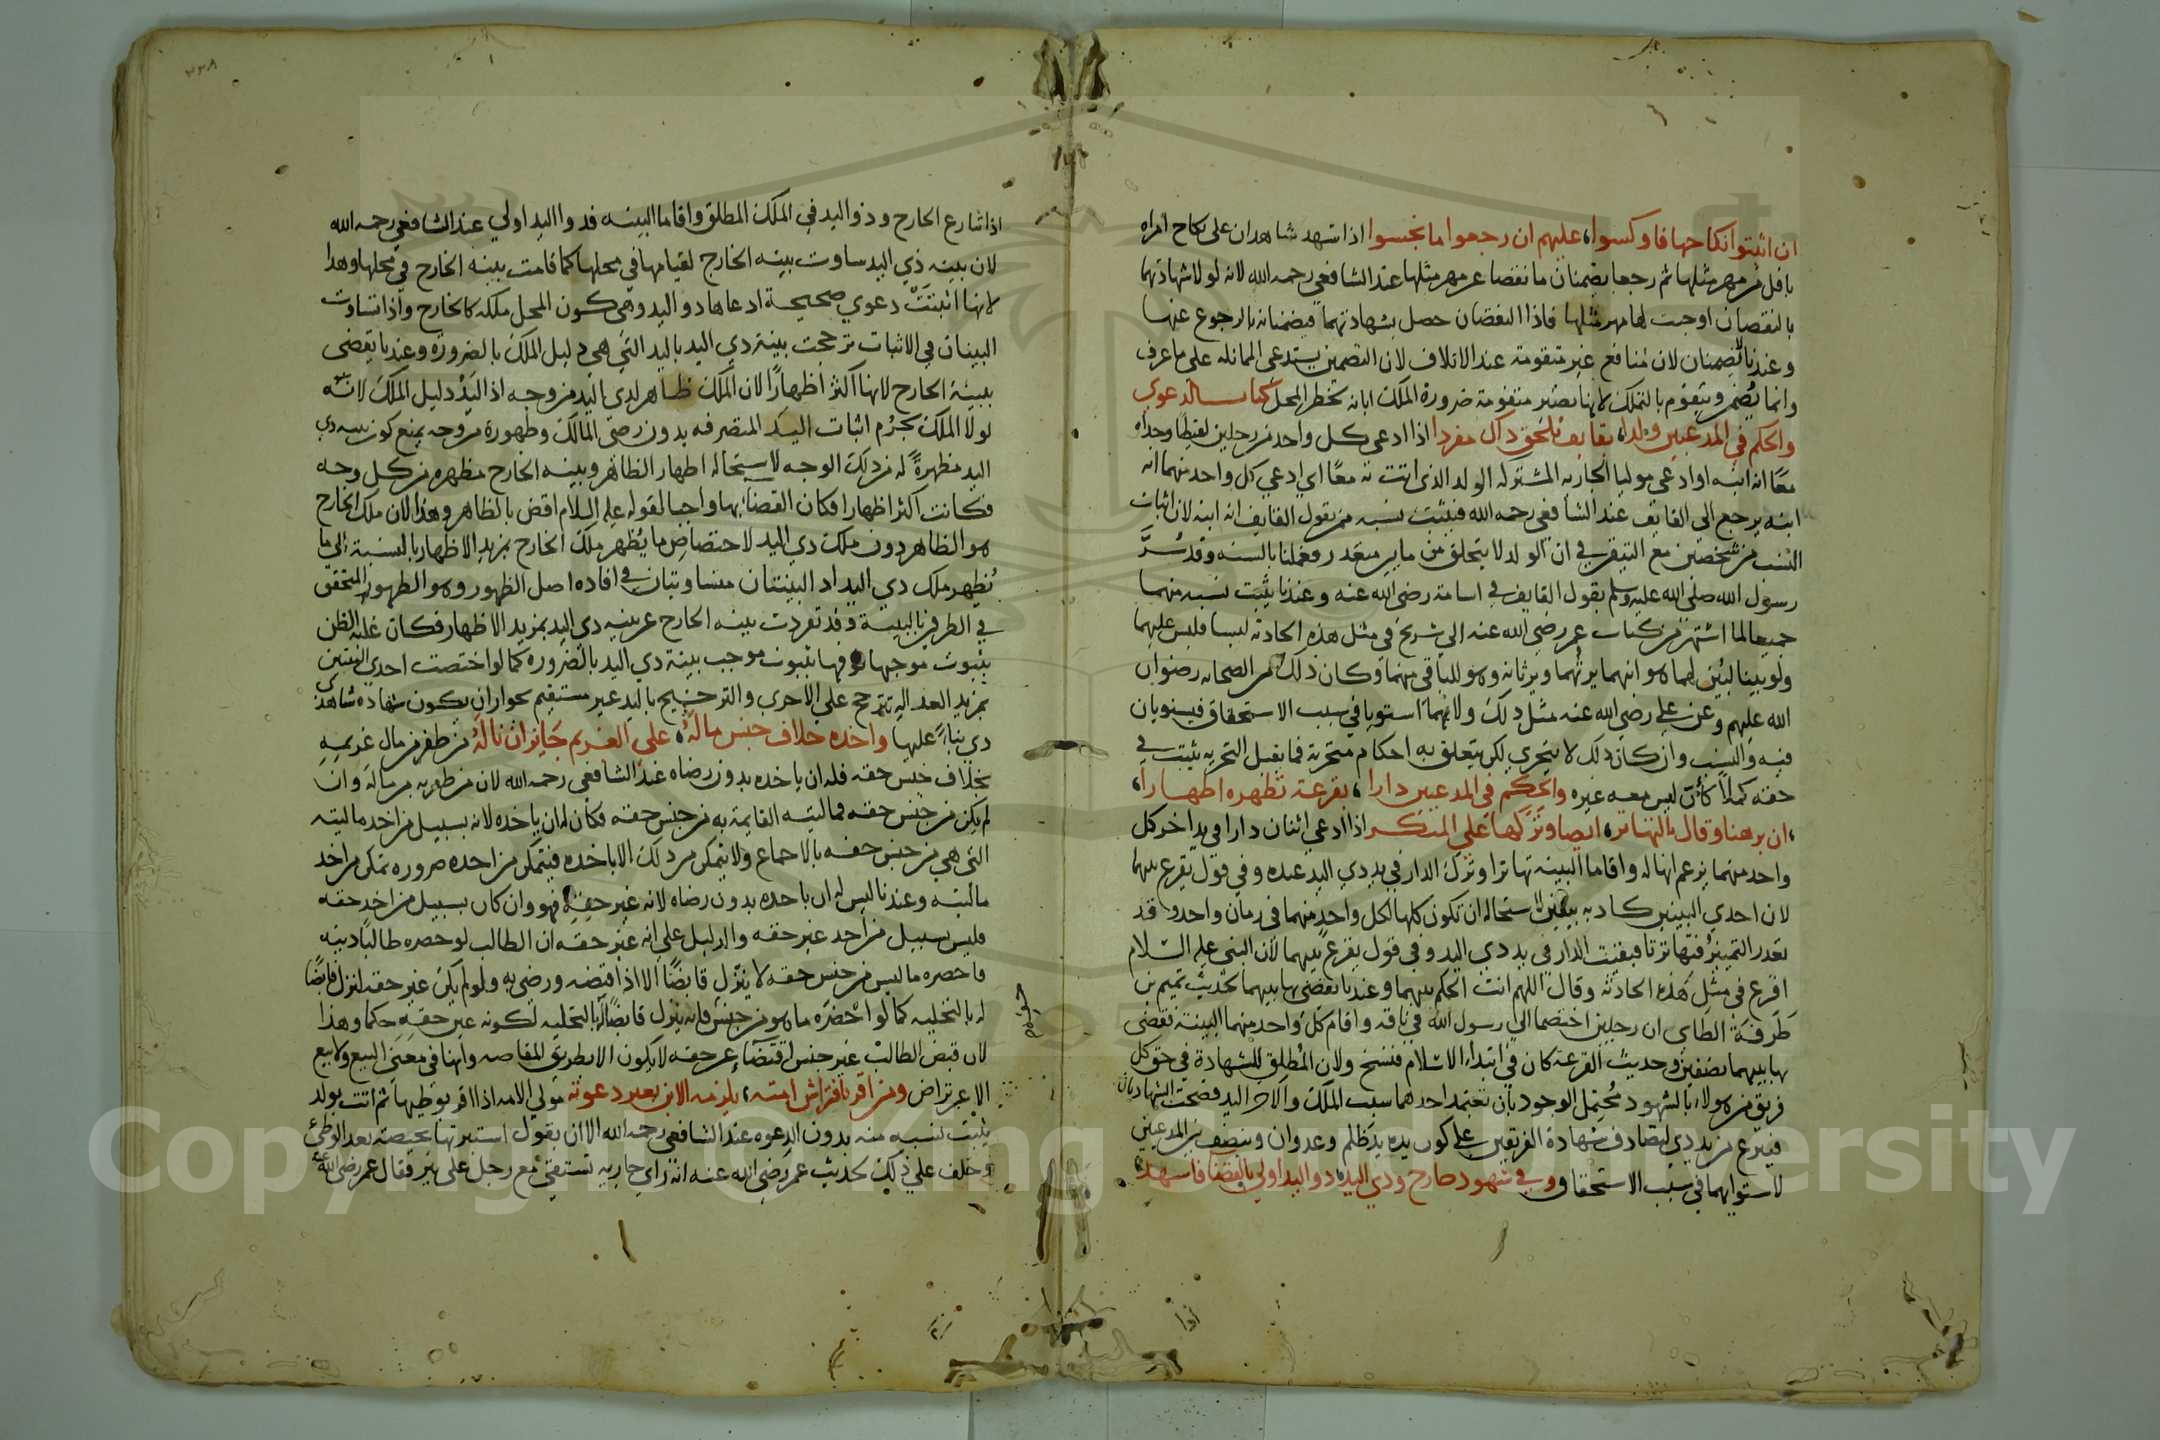 ان اثبتوا نكاحها فاوكسوا عليهم ان رجعوا ما بخسوا اذا شهد شاهدان على نكاح امراه
باقل من مهر مثلها ثم رجعا يضمنان ما نقصا عن مهر مثلها عند الشافعي رحمه الله لانه لولا شهادتهما
بالنقصان اوجبت لها مهر مثلها فاذا النقصان حصل بشهادتهما فيضمنانه بالرجوع عنها
وعندنا لا يضمنان لان منافع غير متقومة عند الاتلاف لان التضمين يستدعي المماثله على ما عرف
وانما يضمن ويتقوم بالتملك لانها تصير متقومة ضرورة الملك ابانة لخطر المحل كتاب الدعوي
والحكم في المدعيين ولدا بقايف يلحق ذاك مفردا اذا ادعى كل واحد من رجلين لقيطا وجداه
معا انه ابنه او ادعى موليا الجاريه المشتركه الولد الذي اتت به معا اي ادعي كل واحد منهما انه
ابنه يرجع الي القايف عند الشافعي رحمه الله فيثبت نسبه ممن يقول القايف انه ابنه لان اثبات
النسب من شخصين مع التيقن في ان الولد لا يتخلق من مايين متعذر فعملنا بالشبه وقد سُرَّ
رسول الله صلى الله عليه وسلم بقول القايف في اسامة رضي الله عنه وعندنا يثبت نسبه منهما
جميعا لما اشتهر من كتاب عمر رضي الله عنه الي شريح في مثل هذه الحادثه لبسا فلبس عليهما
ولو بينا لبُيّن لهما هو ابنهما يرثهما ويرثانه وهو للباقي منهما وكان ذلك بمحضر الصحابه رضوان
الله عليهم وعن علي رضي الله عنه مثل ذلك ولانهما استويا في سبب الاستحقاق فيستويان
فيه والنسب وان كان ذلك لا يتجزي لكن يتعلق به احكام متجزية فما يقبل التجزيه يثبت في
حقه كملا كأن ليس معه غيره والحكم في المدعيين دارا بقرعة تظهره اظهارا
ان برهنا وقال بالتهاتر ايضا وتركها علي المنكر اذا ادعى اثنان دارا في يد اخر كل
واحد منهما يزعم انها له واقاما البينه تهاترا وتترك الدار في يد ذي اليد عنده وفي قول يقرع بينهما
لان احدي البينتين كاذبه بيقين لاستحاله ان تكون كلها لكل واحد منهما في زمان واحد وقد
تعذر التمييز فتهاترتا فبقيت الدار في يد ذي اليد وفي قول يقرع بينهما لان النبي عليه السلام
اقرع في مثل هذه الحادثه وقال اللهم انت الحكم بينهما وعندنا يقضى بها بينهما لحديث تميم بن
طَرَفَة الطاي ان رجلين اختصما الي رسول الله في ناقه واقام كل واحد منهما البينة فقضى
بها بينهما نصفين وحديث القرعة كان في ابتداء الاسلام فنسخ ولان المُطلق للشهادة في حق كل
فريق من هولاء بالشهود مُحتمل الوجود بان يعتمد احدهما سبب الملك والاخر اليد فصحت الشهادتان
فينزع من يد ذي ليتصادف شهادة الفريقين علي كون يده يد ظلم وعدوان وينصف بين المدعيين
لاستوايهما في سبب الاستحقاق وفي شهود خارج وذي اليد ذو اليد اولي بالقضا فاشهد
اذا شارع الخارج وذو اليد في الملك المطلق واقاما البينه فذو اليد اولي عند الشافعي رحمه الله
لان بينه ذي اليد ساوت بينه الخارج لقيامها في محلها كما قامت بينه الخارج في محلها وهذا
لانها اثبتَتْ دعوي صحيحة ادعاها ذو اليد وهي كون المحل ملكه كالخارج واذا تساوت
البينتان في الاثبات ترجحت بينة ذي اليد باليد التي هي دليل الملك بالضرورة وعندنا يقضى
ببينة الخارج لانها اكثر اظهارًا لان الملك ظاهر لذي اليد من وجه اذ اليَدُ دليل الملك لانه
لولا الملك لحرُم اثبات اليد المتصرفه بدون رضى المالك وظهوره من وجه يمنع كون بينه ذي
اليد مظهرةً له من ذلك الوجه لاستحاله اظهار الظاهر وبينه الخارج مظهره من كل وجه
فكانت اكثر اظهارا فكان القضا بها واجبا لقوله عليه السلام اقض بالظاهر وهذا لان ملك الخارج
هو الظاهر دون ملك ذي اليد لاختصاص ما يُظهر ملك الخارج بمزيد الاظهار بالنسبة الي ما
يُظهر ملك ذي اليد اذ البينتان متساويتان في افاده اصل الظهور وهو الظهور المتحقق
في الطرفين بالبينة وقد تفردت بينه الخارج عن بينه ذي اليد بمزيد الاظهار فكان غلبه الظن
بثبوت موجبها فوقها بثبوت موجب بينة ذي اليد بالضروره كما لو اختصت احدي البينتين
بمزيد العداله تترجح علي الاخرى والترجيح باليد غير مستقيم لجواز ان يكون شهاده شاهدي
ذي بناءً عليها واخذه خلاف جنس مالَهُ علي الغريم جَايز ان نالَهُ من ظفر من مال غريمِهِ
بخلاف جنس حقه فله ان ياخذه بدون رضاه عند الشافعي رحمه الله لان من ظفر به من ماله وان
لم يكن من جنس حقه فماليته القايمة به من جنس حقه فكان له ان ياخذه لانه بسبيل من اخذ ماليته
التي هي من جنس حقه بالاجماع ولا يتمكن من ذلك الا باخذه فيتمكن من اخذه ضروره تمكن من اخذ
ماليته وعندنا ليس له ان ياخذه بدون رضاه لانه غير حقه فهو وان كان بسبيل من اخذ حقه
فليس بسبيل من اخذ غير حقه والدليل علي انه غير حقه ان الطالب لو حضره طالبًا دينه
فاحضره ما ليس من جنس حقه لا ينزل قابضًا الا اذا اقبضه ورضي به ولو لم يكن غير حقه لنزل قابضًا
له بالتخليه كما لو احْضَره ما هو من جنس فانه ينزل قابضًا له بالتخليه لكونه عين حقه حكما وهذا
لان قبض الطالب غير جنس اقتضاءٍ عن حقه لا يكون الا بطريق المقاصه وانها في معنَى البيع ولا بيع
الا عن تراض ومن اقر بافتراش امته يلزمه الابن بغير دعوته مولي الامه اذا اقر بوطيها ثم اتت بولد
يثبت نسبه منه بدون الدعوه عند الشافعي رحمه الله الا ان يقول استبرتها بحيضة بعد الوطئ
وحلف علي ذلك لحديث عمر رضي الله عنه انه راي جاريه تستقي مع رجل على بير فقال عمر رضي الله عنه
Copyright © King Saud University